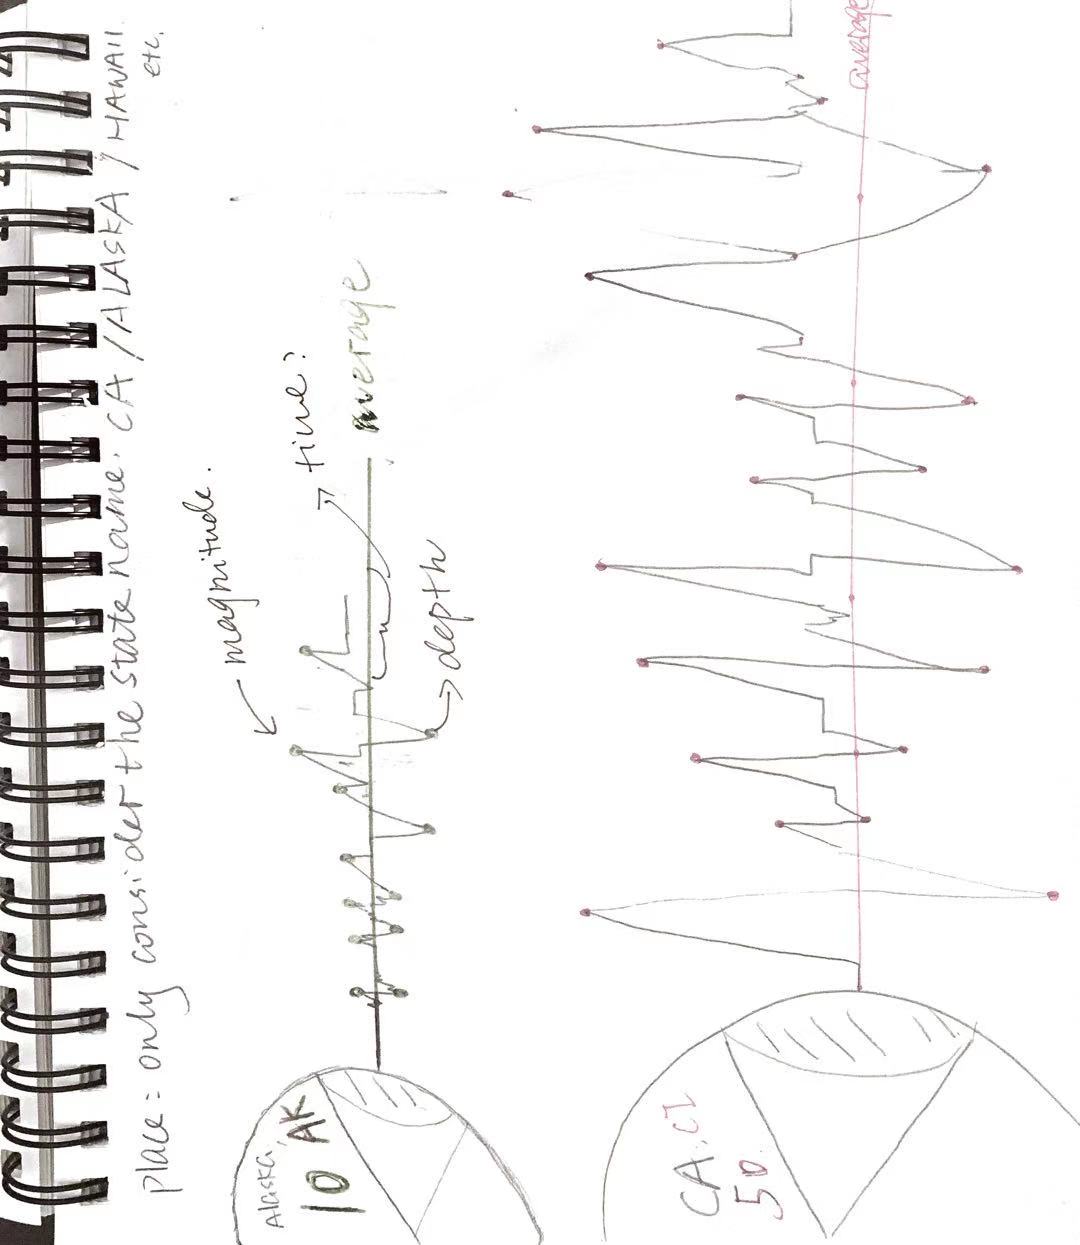 place = only consider the state name. CA / ALASKA / HAWAII.
etc.
magnitude.
time?
average
depth
Alaska,
AK
10
average
CA: CI
50